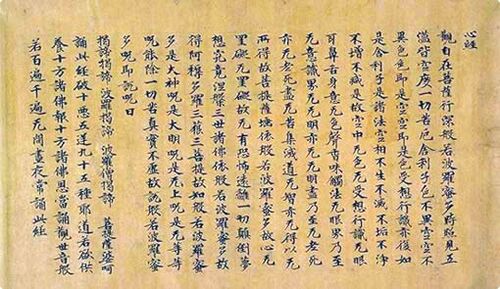 心經
觀自在菩薩行深般若波羅蜜多時照見五
蘊皆空度一切苦厄舍利子色不異空空不
異色色即是空空即是色受想行識亦復如
是舍利子是諸法空相不生不滅不垢不淨
不增不減是故空中无色无受想行識无眼
耳鼻舌身意无色聲香味觸法无眼界乃至
无意識界无无明亦无无明盡乃至无老死
亦无老死盡无苦集滅道无智亦无得以无
所得故菩提薩埵依般若波羅蜜多故心无
罣礙无罣礙故无有恐怖遠離一切顛倒夢
想究竟涅槃三世諸佛依般若波羅蜜多故
得阿耨多羅三藐三菩提故知般若波羅蜜
多是大神呪是大明呪是无上呪是无等等
呪能除一切苦真實不虛故說般若波羅蜜
多呪即說呪曰
揭諦揭諦 波羅揭諦 波羅僧揭諦 菩提薩婆呵
誦此經破十惡五逆九十五種耶道若欲供
養十方諸佛報十方諸佛恩當誦觀世音般
若百遍千遍无間晝夜常誦此經